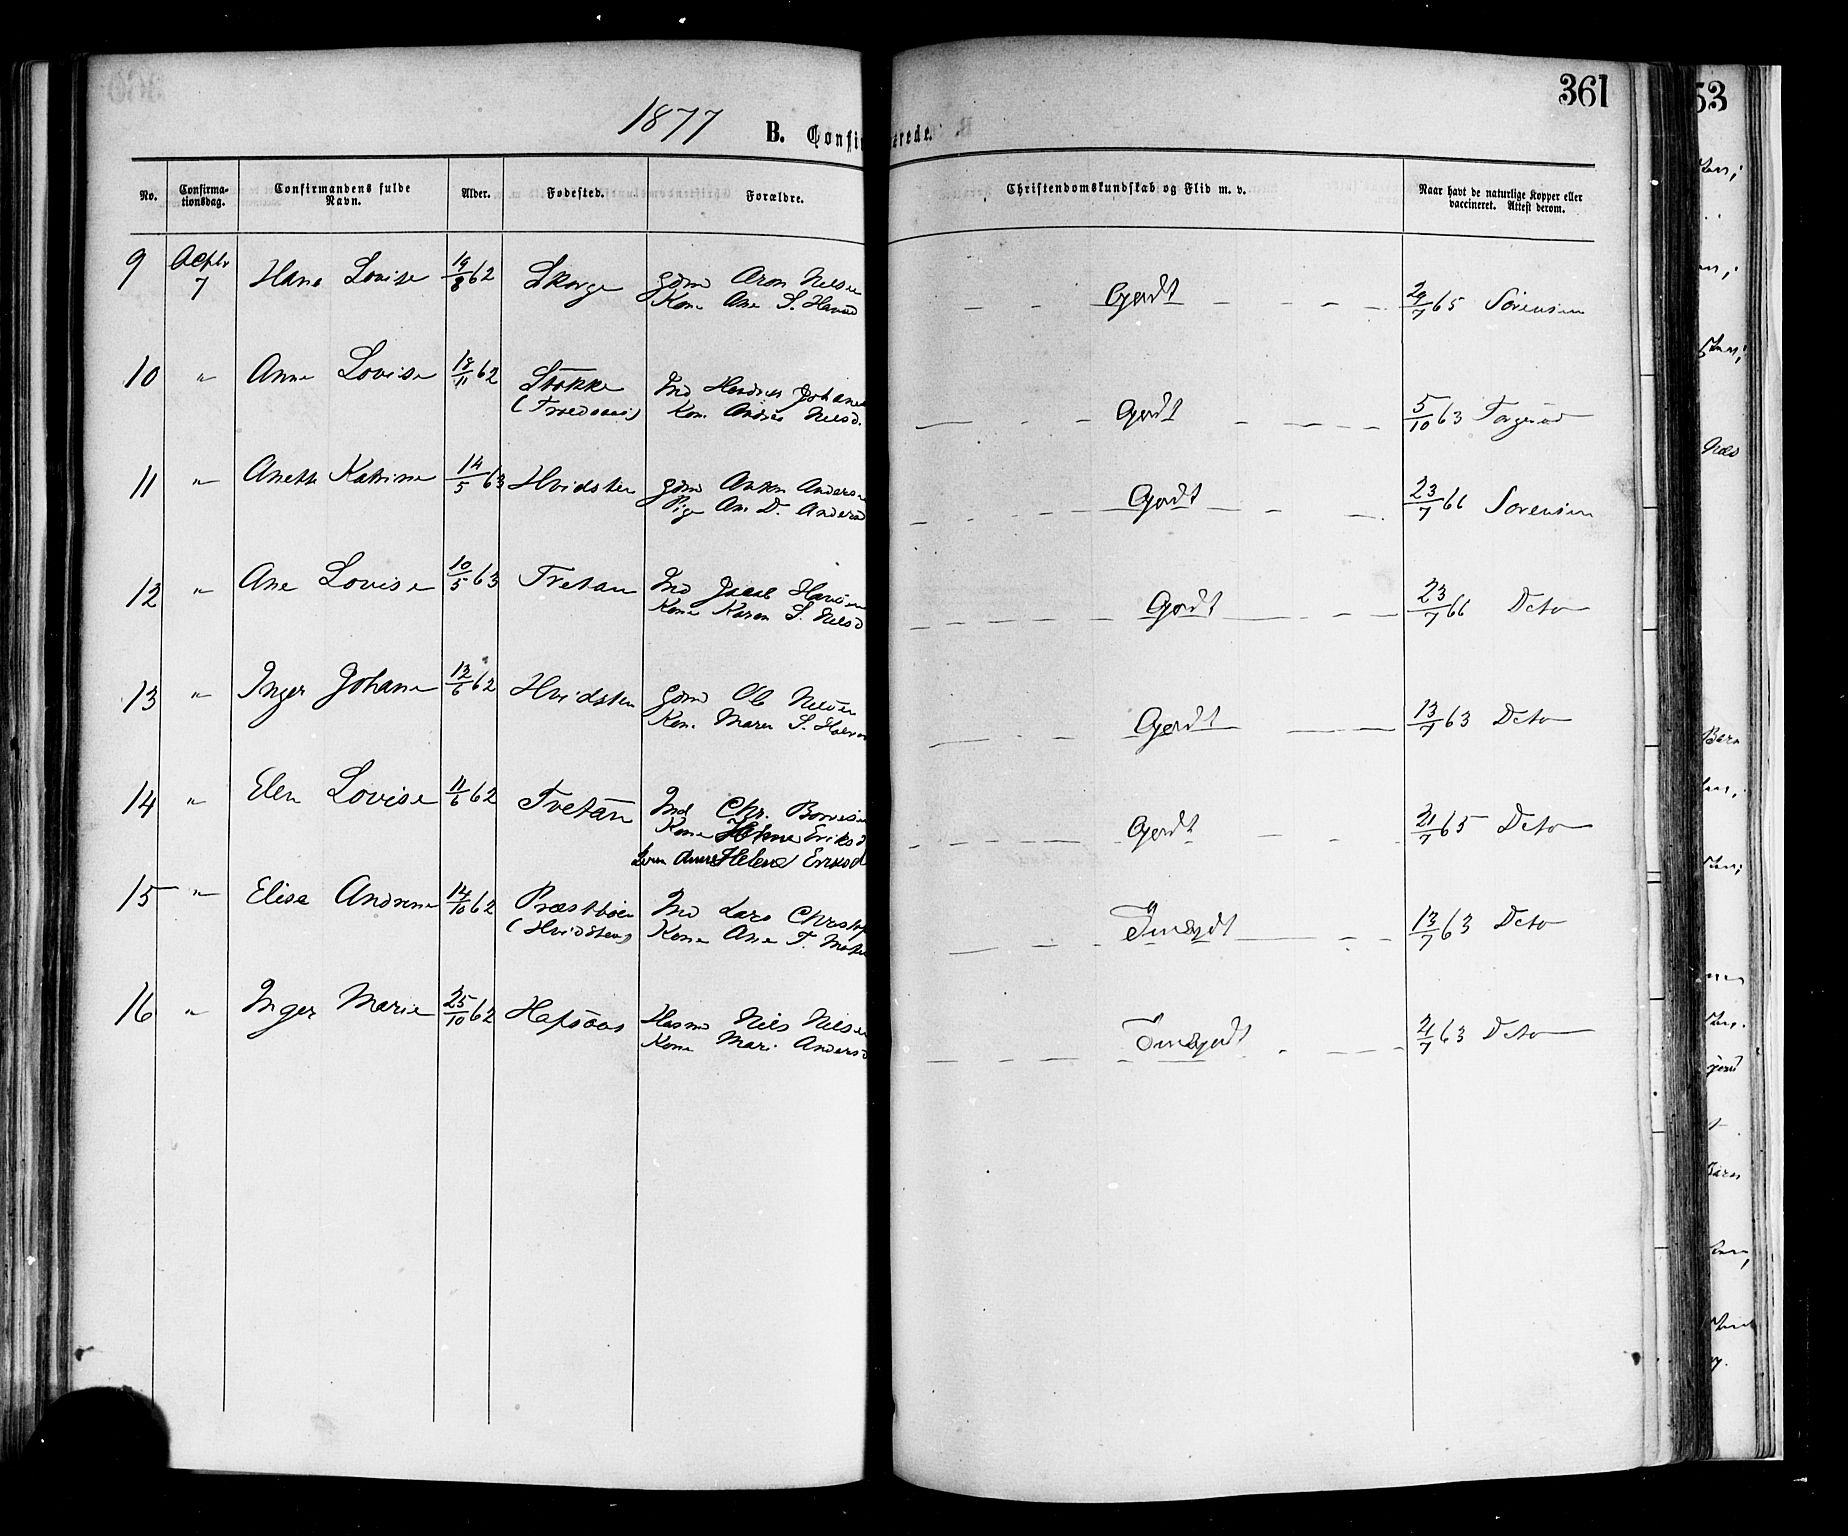 361
53
1877
B. Confir erede.
No.
Confirma-
tionsdag.
Confirmandens fulde
Navn.
Alder.
Fødested.
Forældre.
Christendomskundskab og Flid m. v.
Naar havt de naturlige Kopper eller
vaccineret. Attest derom.
9 7 Hana Lovise 19/8 62 Skorge gdm Aron Nilsen
Kone Ane S. Hansd
Godt 29/7 65 Sørensen
10 " Anne Lovise 18/11 62 Stokke Ind Johan
Kon. Nilsd.
Godt 5/10 63 Torgersen
11 " Anette Katrine 14/5 63 Hvidsten gdm Anders
Pige An D. Andersd
Godt 23/7 66 Sørensen
12 " Ane Lovise 10/5 63 Tretan Ind Jacob Hansen
Kone Karen S. Nilsd
Godt 23/7 66 Dito
13 " Inger Johane 12/6 62 Hvidsten gdm Ole Nilsen
Kon. Maren S. Halvor
Godt 13/7 63 Dito
14 " Elen Lovise 11/6 62 Tvetan Ind Chr.
Kone Helene Eriksd
Helene Ericsd
Godt 21/7 65 Dito
15 " Elise Andrine 14/10 62 Præstbøen Ind Lars Christop
(Hvidsten) Kone Ane T.
13/7 63 Dito
16 " Inger Marie 25/10 62 Hafsaas Husm Nils Nilsen
Kone Mari Andersd
21/7 63 Dito